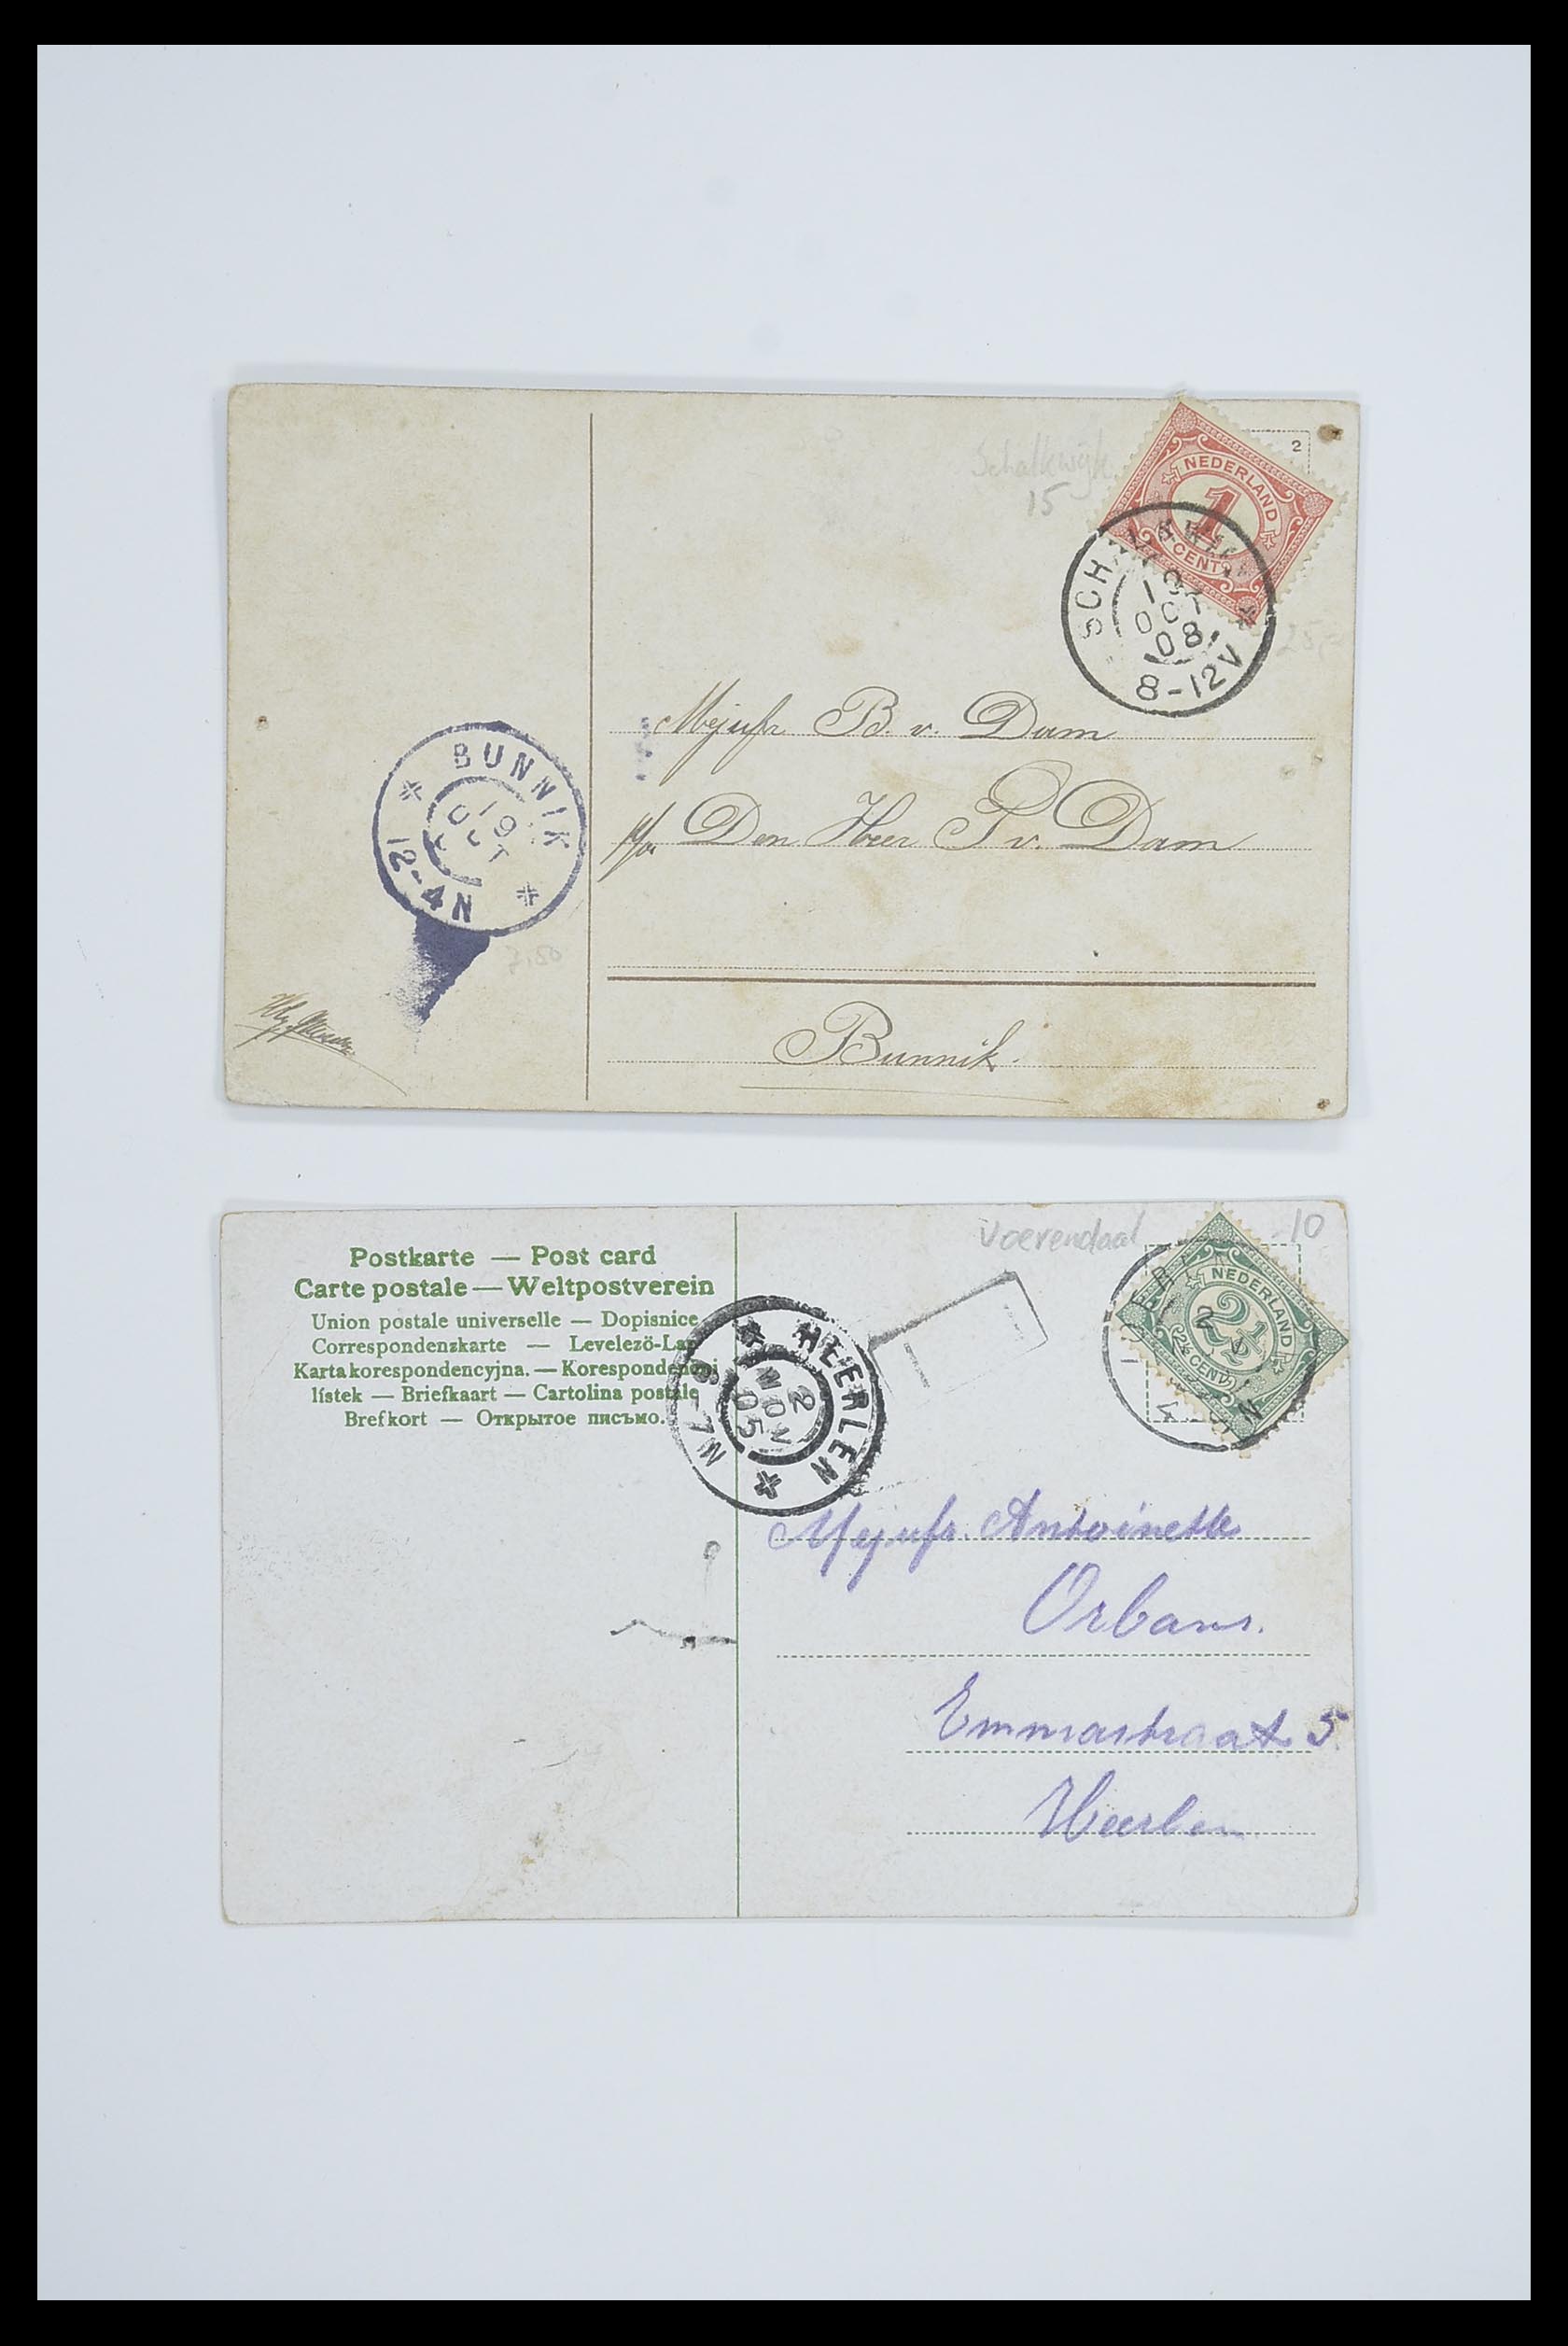 Schalkwijk
15
2
NEDERLAND
1
CENT
SCHALKWIJK
19
OCT
08
8-12V
25,=
Mejufr B. v. Dam
p/a Den Heer P v. Dam
Bunnik.
BUNNIK
19
OCT
12-4N
7,50
Voerendaal
10
Postkarte — Post card
Carte postale — Weltpostverein
Union postale universelle — Dopisnice
Correspondenzkarte — Levelezö-Lap
Karta korespondencyjna. — Korespondenčni
lístek — Briefkaart — Cartolina postale
Brefkort — Открытое письмо.
HEERLEN
2
NOV
05
6-7N
NEDERLAND
2½
2½ CENT
Mejufr. Antoinette
Orbans.
Emmastraat 5
Heerlen